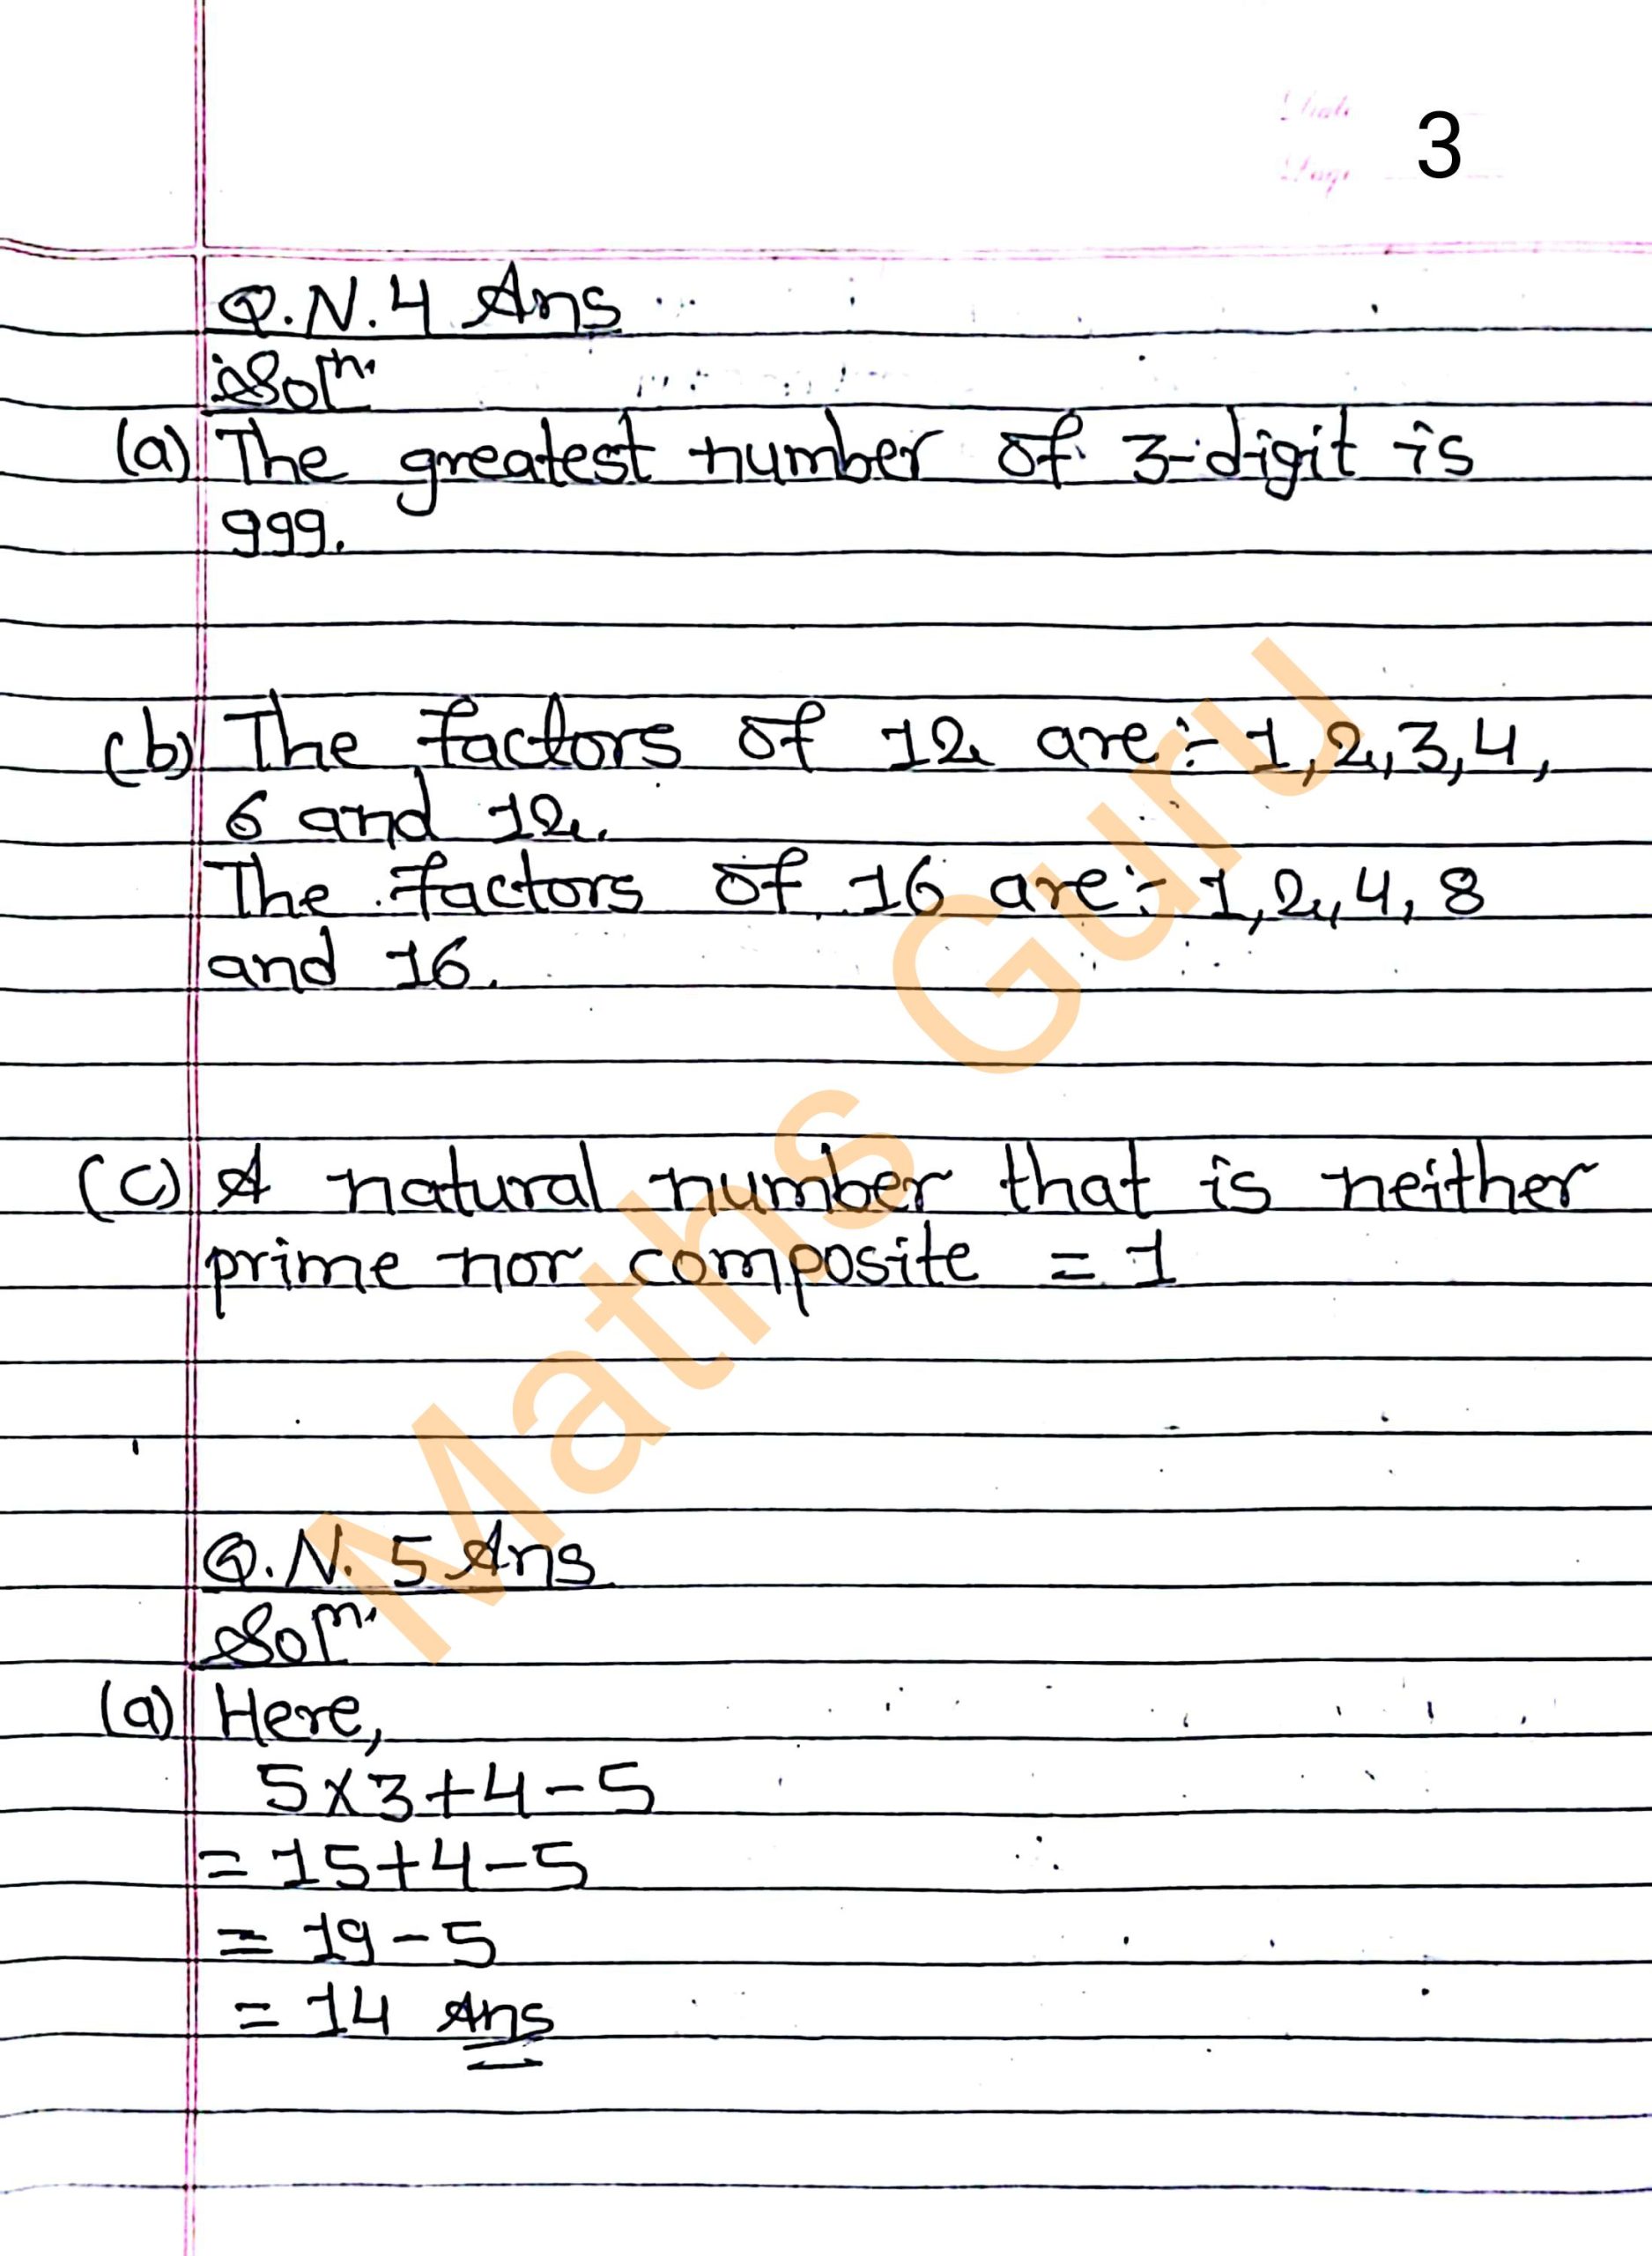 Date
Page 3
Q.N.4 Ans
Solⁿ.
(a) The greatest number of 3-digit is
999.
(b) The factors of 12 are:- 1,2,3,4,
6 and 12.
The factors of 16 are:- 1,2,4,8
and 16.
(c) A natural number that is neither
prime nor composite = 1
Q.N. 5 Ans
Solⁿ.
(a) Here,
5×3+4-5
= 15+4-5
= 19-5
= 14 Ans
Maths Guru